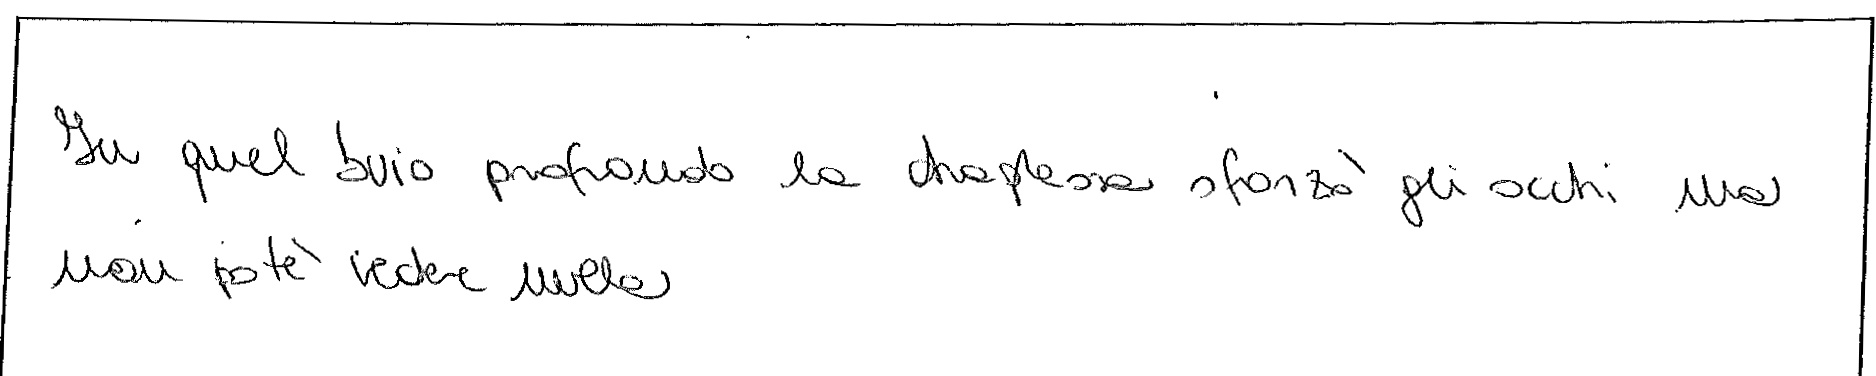 In quel buio profondo la sforzò gli occhi ma
non potè vedere nulla